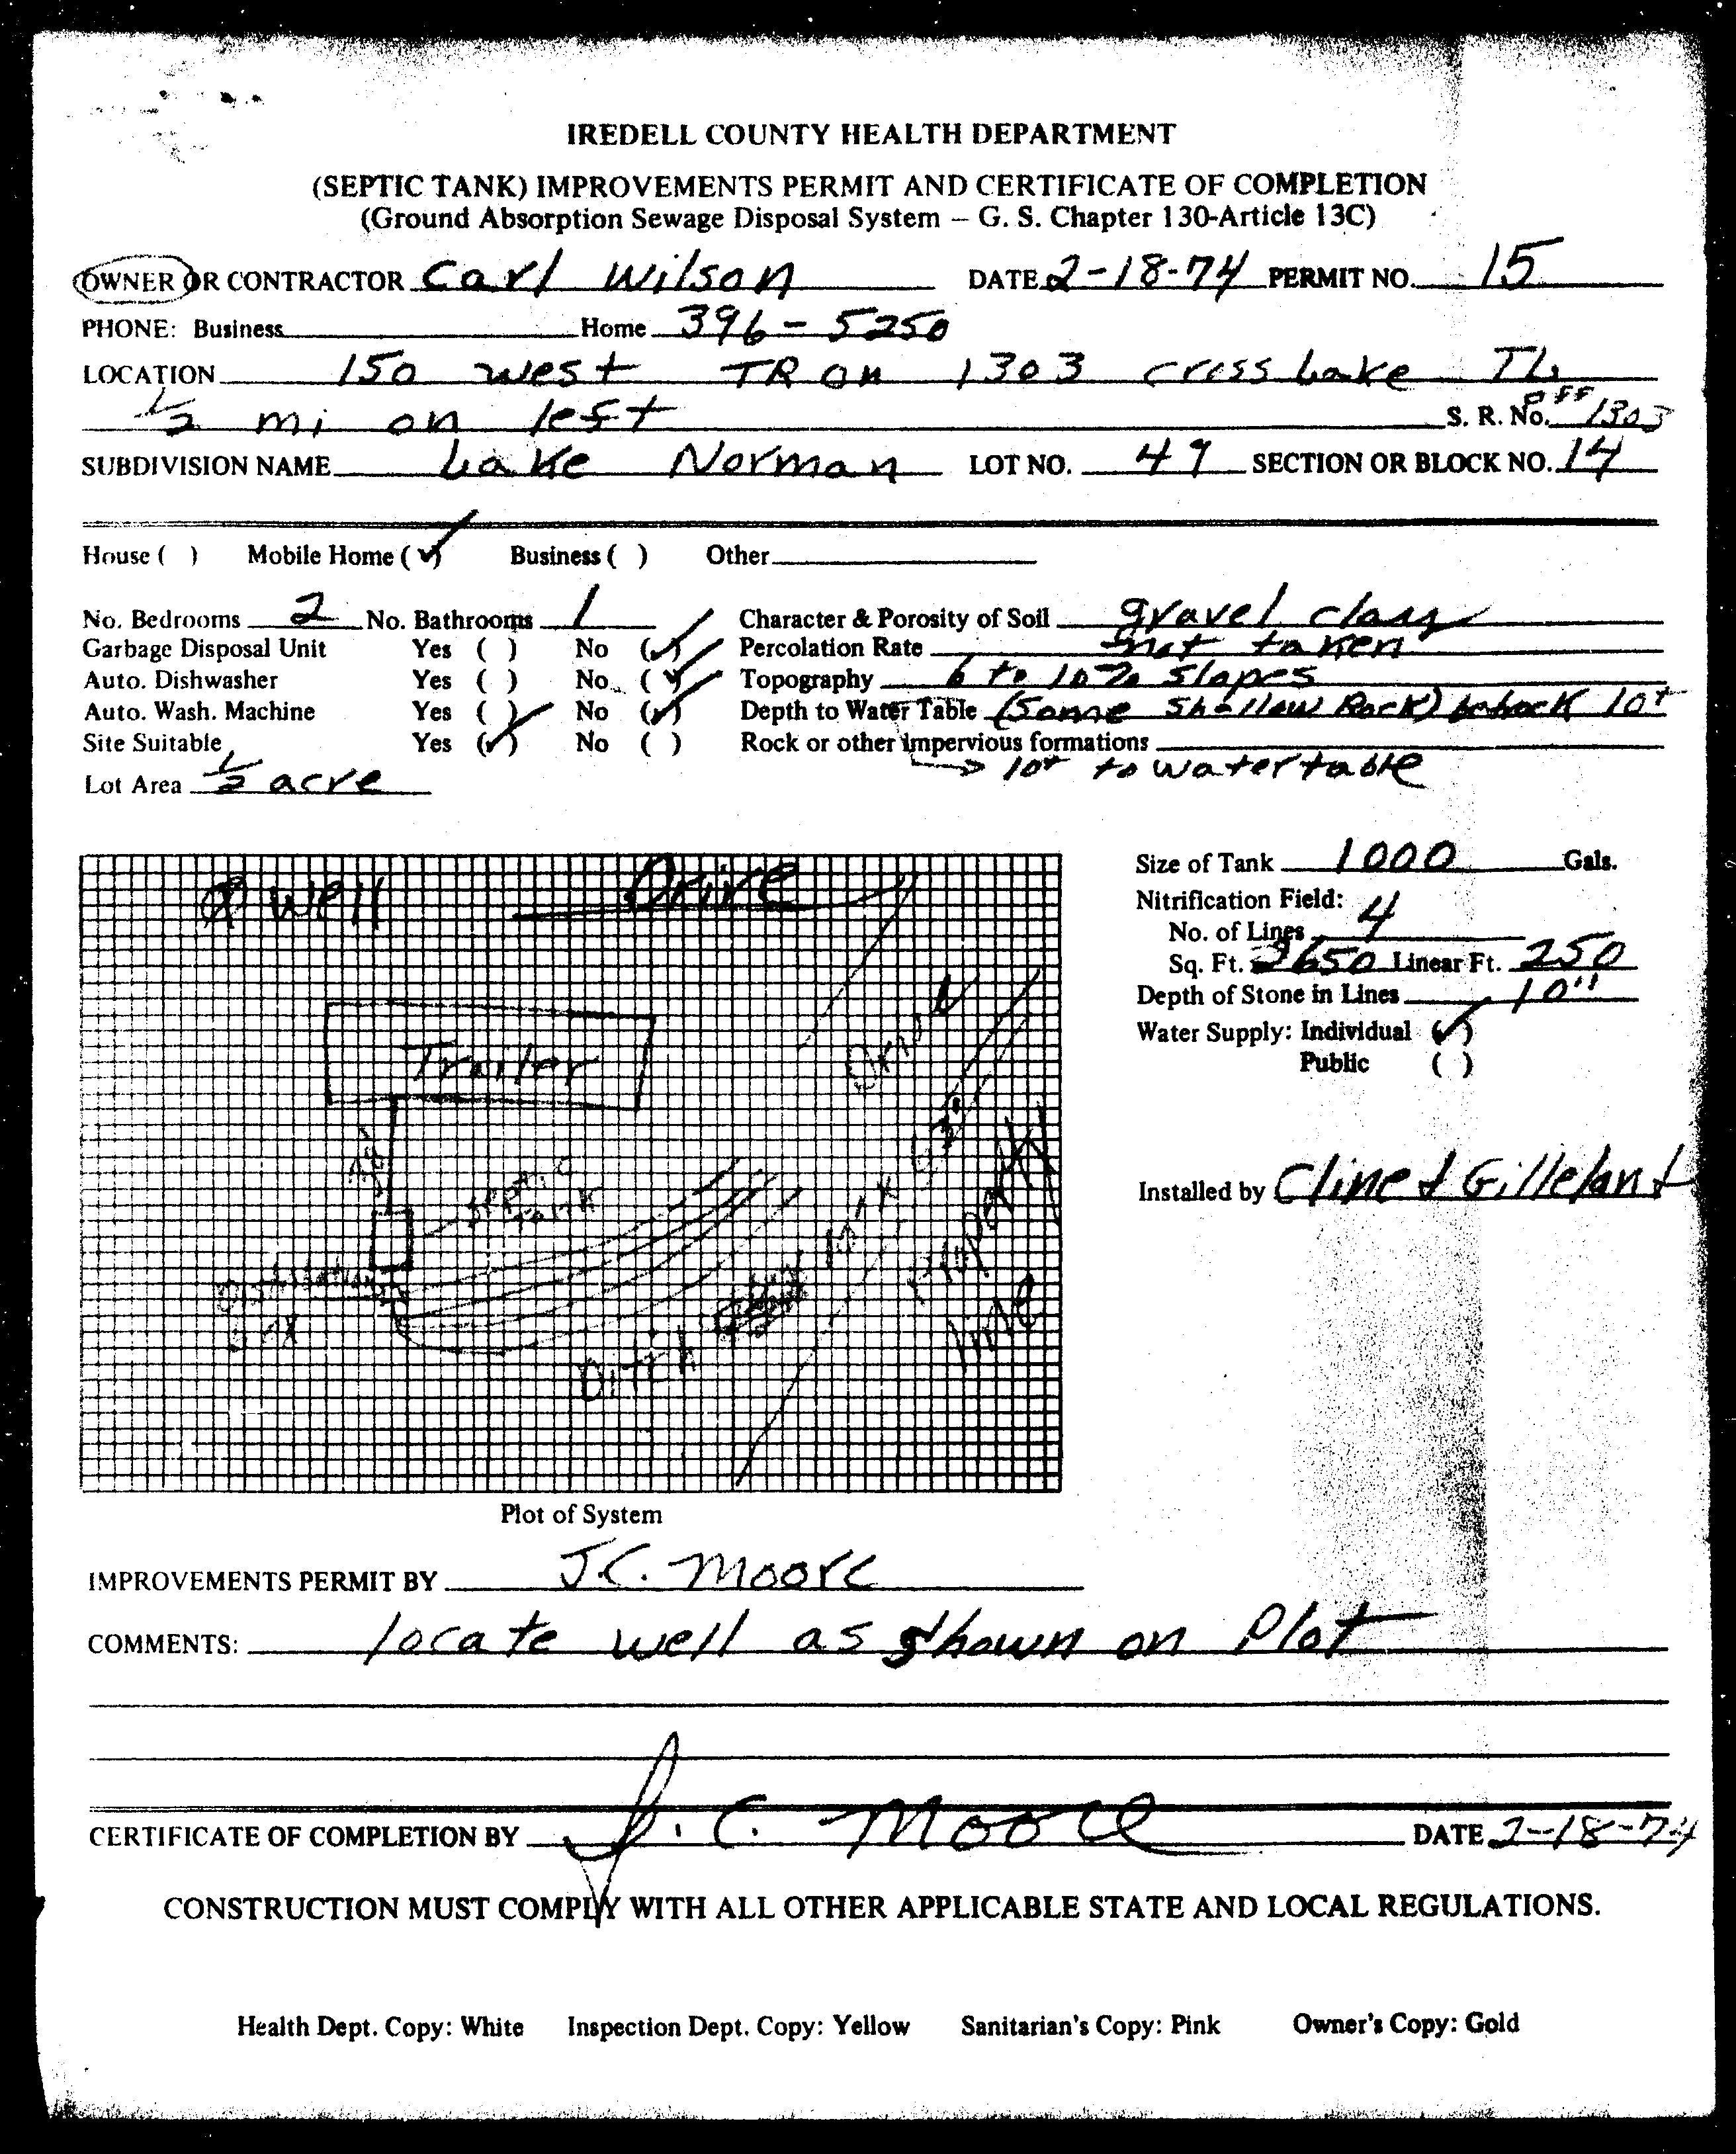 IREDELL COUNTY HEALTH DEPARTMENT
(SEPTIC TANK) IMPROVEMENTS PERMIT AND CERTIFICATE OF COMPLETION
(Ground Absorption Sewage Disposal System – G. S. Chapter 130-Article 13C)
OWNER OR CONTRACTOR Carl Wilson DATE 2-18-74 PERMIT NO. 15
PHONE: Business Home 396-5250
LOCATION 150 west TR on 1303 cross Lake TL
1/2 mi on left S. R. No. off 1303
SUBDIVISION NAME Lake Norman LOT NO. 49 SECTION OR BLOCK NO. 14
House ( ) Mobile Home (✓) Business ( ) Other
No. Bedrooms 2 No. Bathrooms 1 Character & Porosity of Soil gravel
Garbage Disposal Unit Yes ( ) No (✓) Percolation Rate not taken
Auto. Dishwasher Yes ( ) No (✓) Topography 6 to 10% slopes
Auto. Wash. Machine Yes ( ) No (✓) Depth to Water Table (Some Shallow Rock) 10+
Site Suitable Yes (✓) No ( ) Rock or other impervious formations
Lot Area 1/2 acre → 10+ to water table
well Drive
Trailer
Drive
Septic
Tank
Ditch
Property
line
Plot of System
Size of Tank 1000 Gals.
Nitrification Field:
No. of Lines 4
Sq. Ft. Linear Ft. 250
Depth of Stone in Lines 10"
Water Supply: Individual (✓)
Public ( )
Installed by Cline & Gilleland
IMPROVEMENTS PERMIT BY J.C. Moore
COMMENTS: locate well as shown on Plot
CERTIFICATE OF COMPLETION BY J. C. Moore DATE 2-18-74
CONSTRUCTION MUST COMPLY WITH ALL OTHER APPLICABLE STATE AND LOCAL REGULATIONS.
Health Dept. Copy: White Inspection Dept. Copy: Yellow Sanitarian's Copy: Pink Owner's Copy: Gold